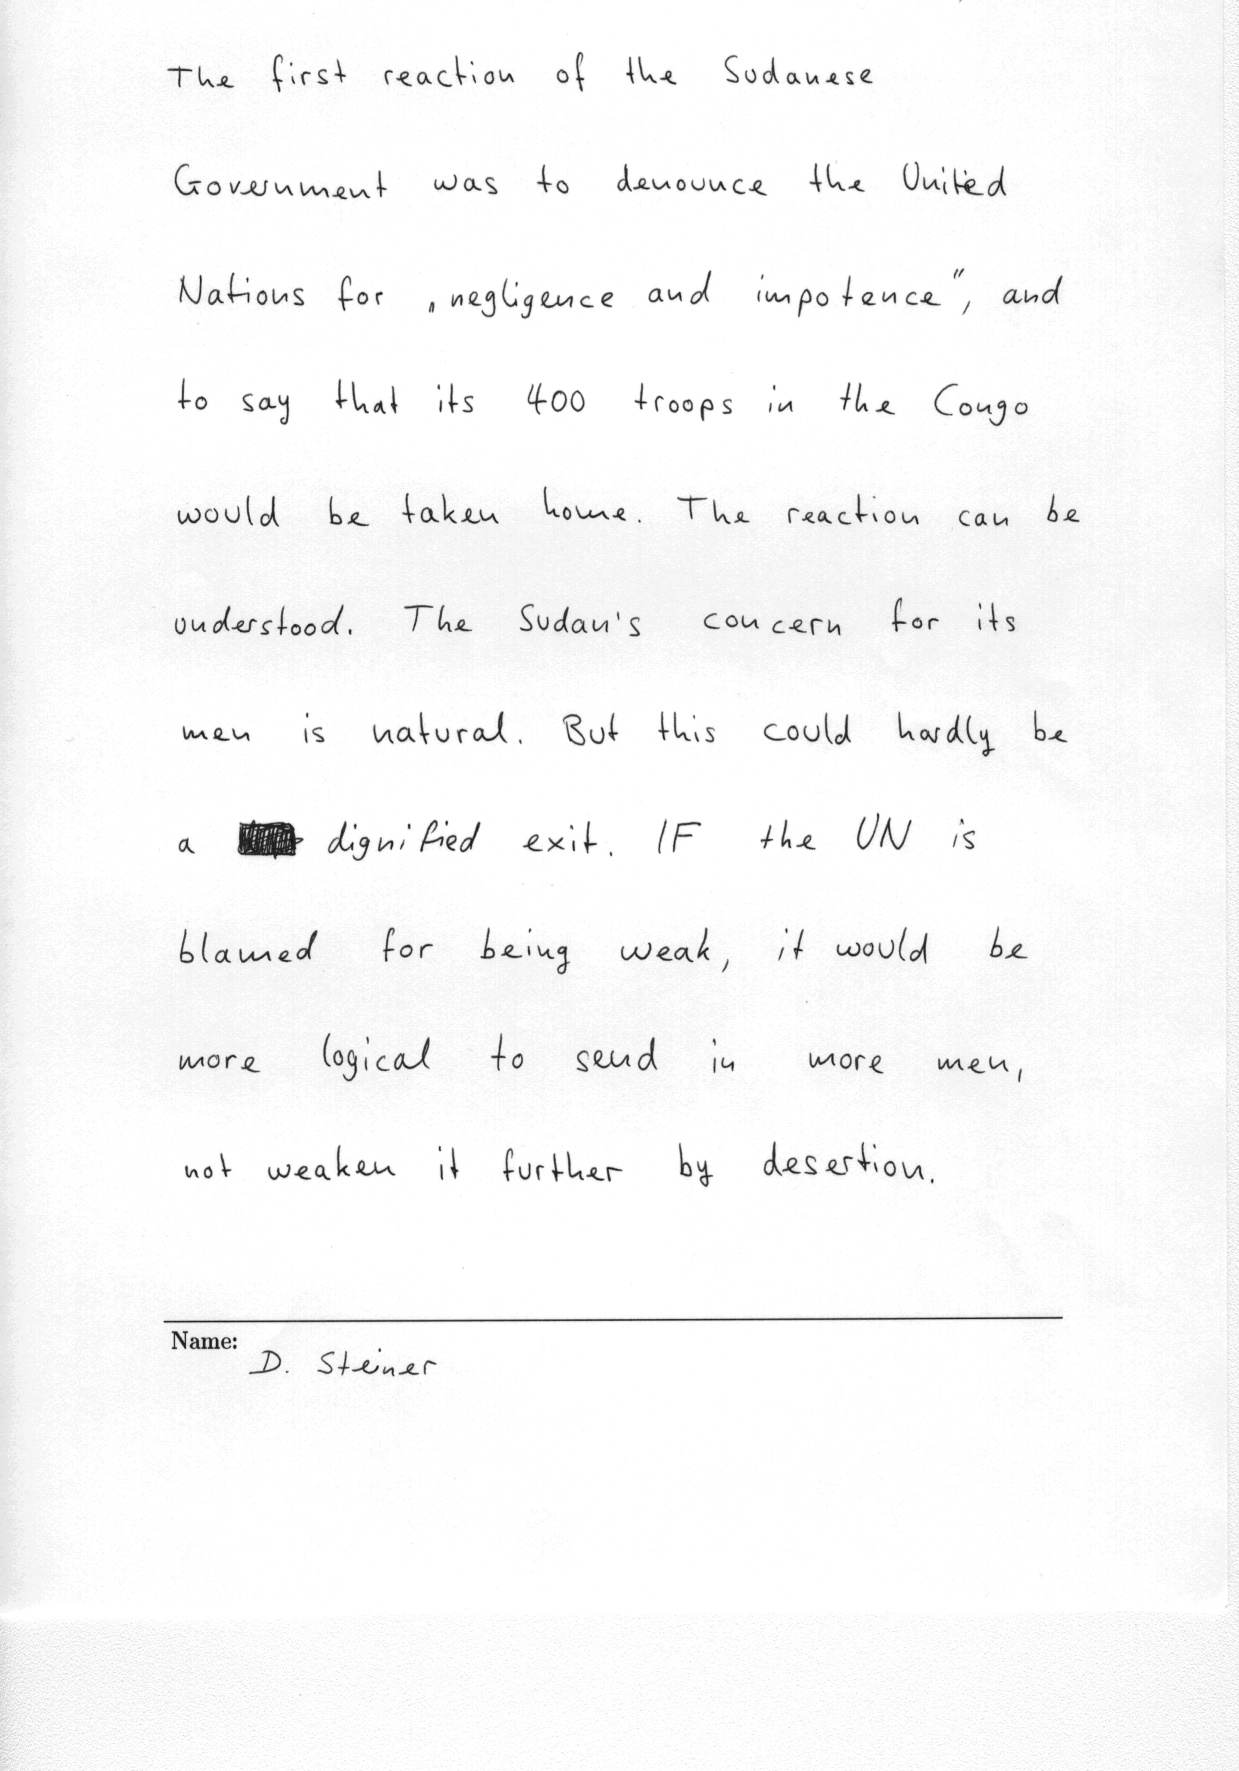 The first reaction of the Sudanese
Government was to denounce the United
Nations for „negligence and impotence", and
to say that its 400 troops in the Congo
would be taken home. The reaction can be
understood. The Sudan's concern for its
men is natural. But this could hardly be
a dignified exit. IF the UN is
blamed for being weak, it would be
more logical to send in more men,
not weaken it further by desertion.
Name:
D. Steiner